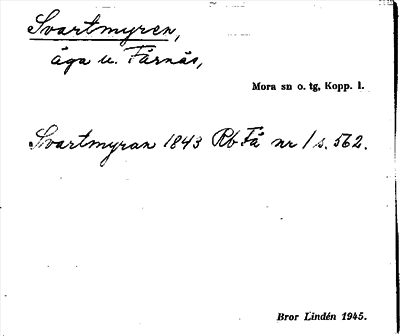 Svartmyren,
äga u. Färnäs,
Mora sn o. tg, Kopp. l.
Svartmyran 1843 Rb Fä nr 1 s. 562.
Bror Lindén 1945.